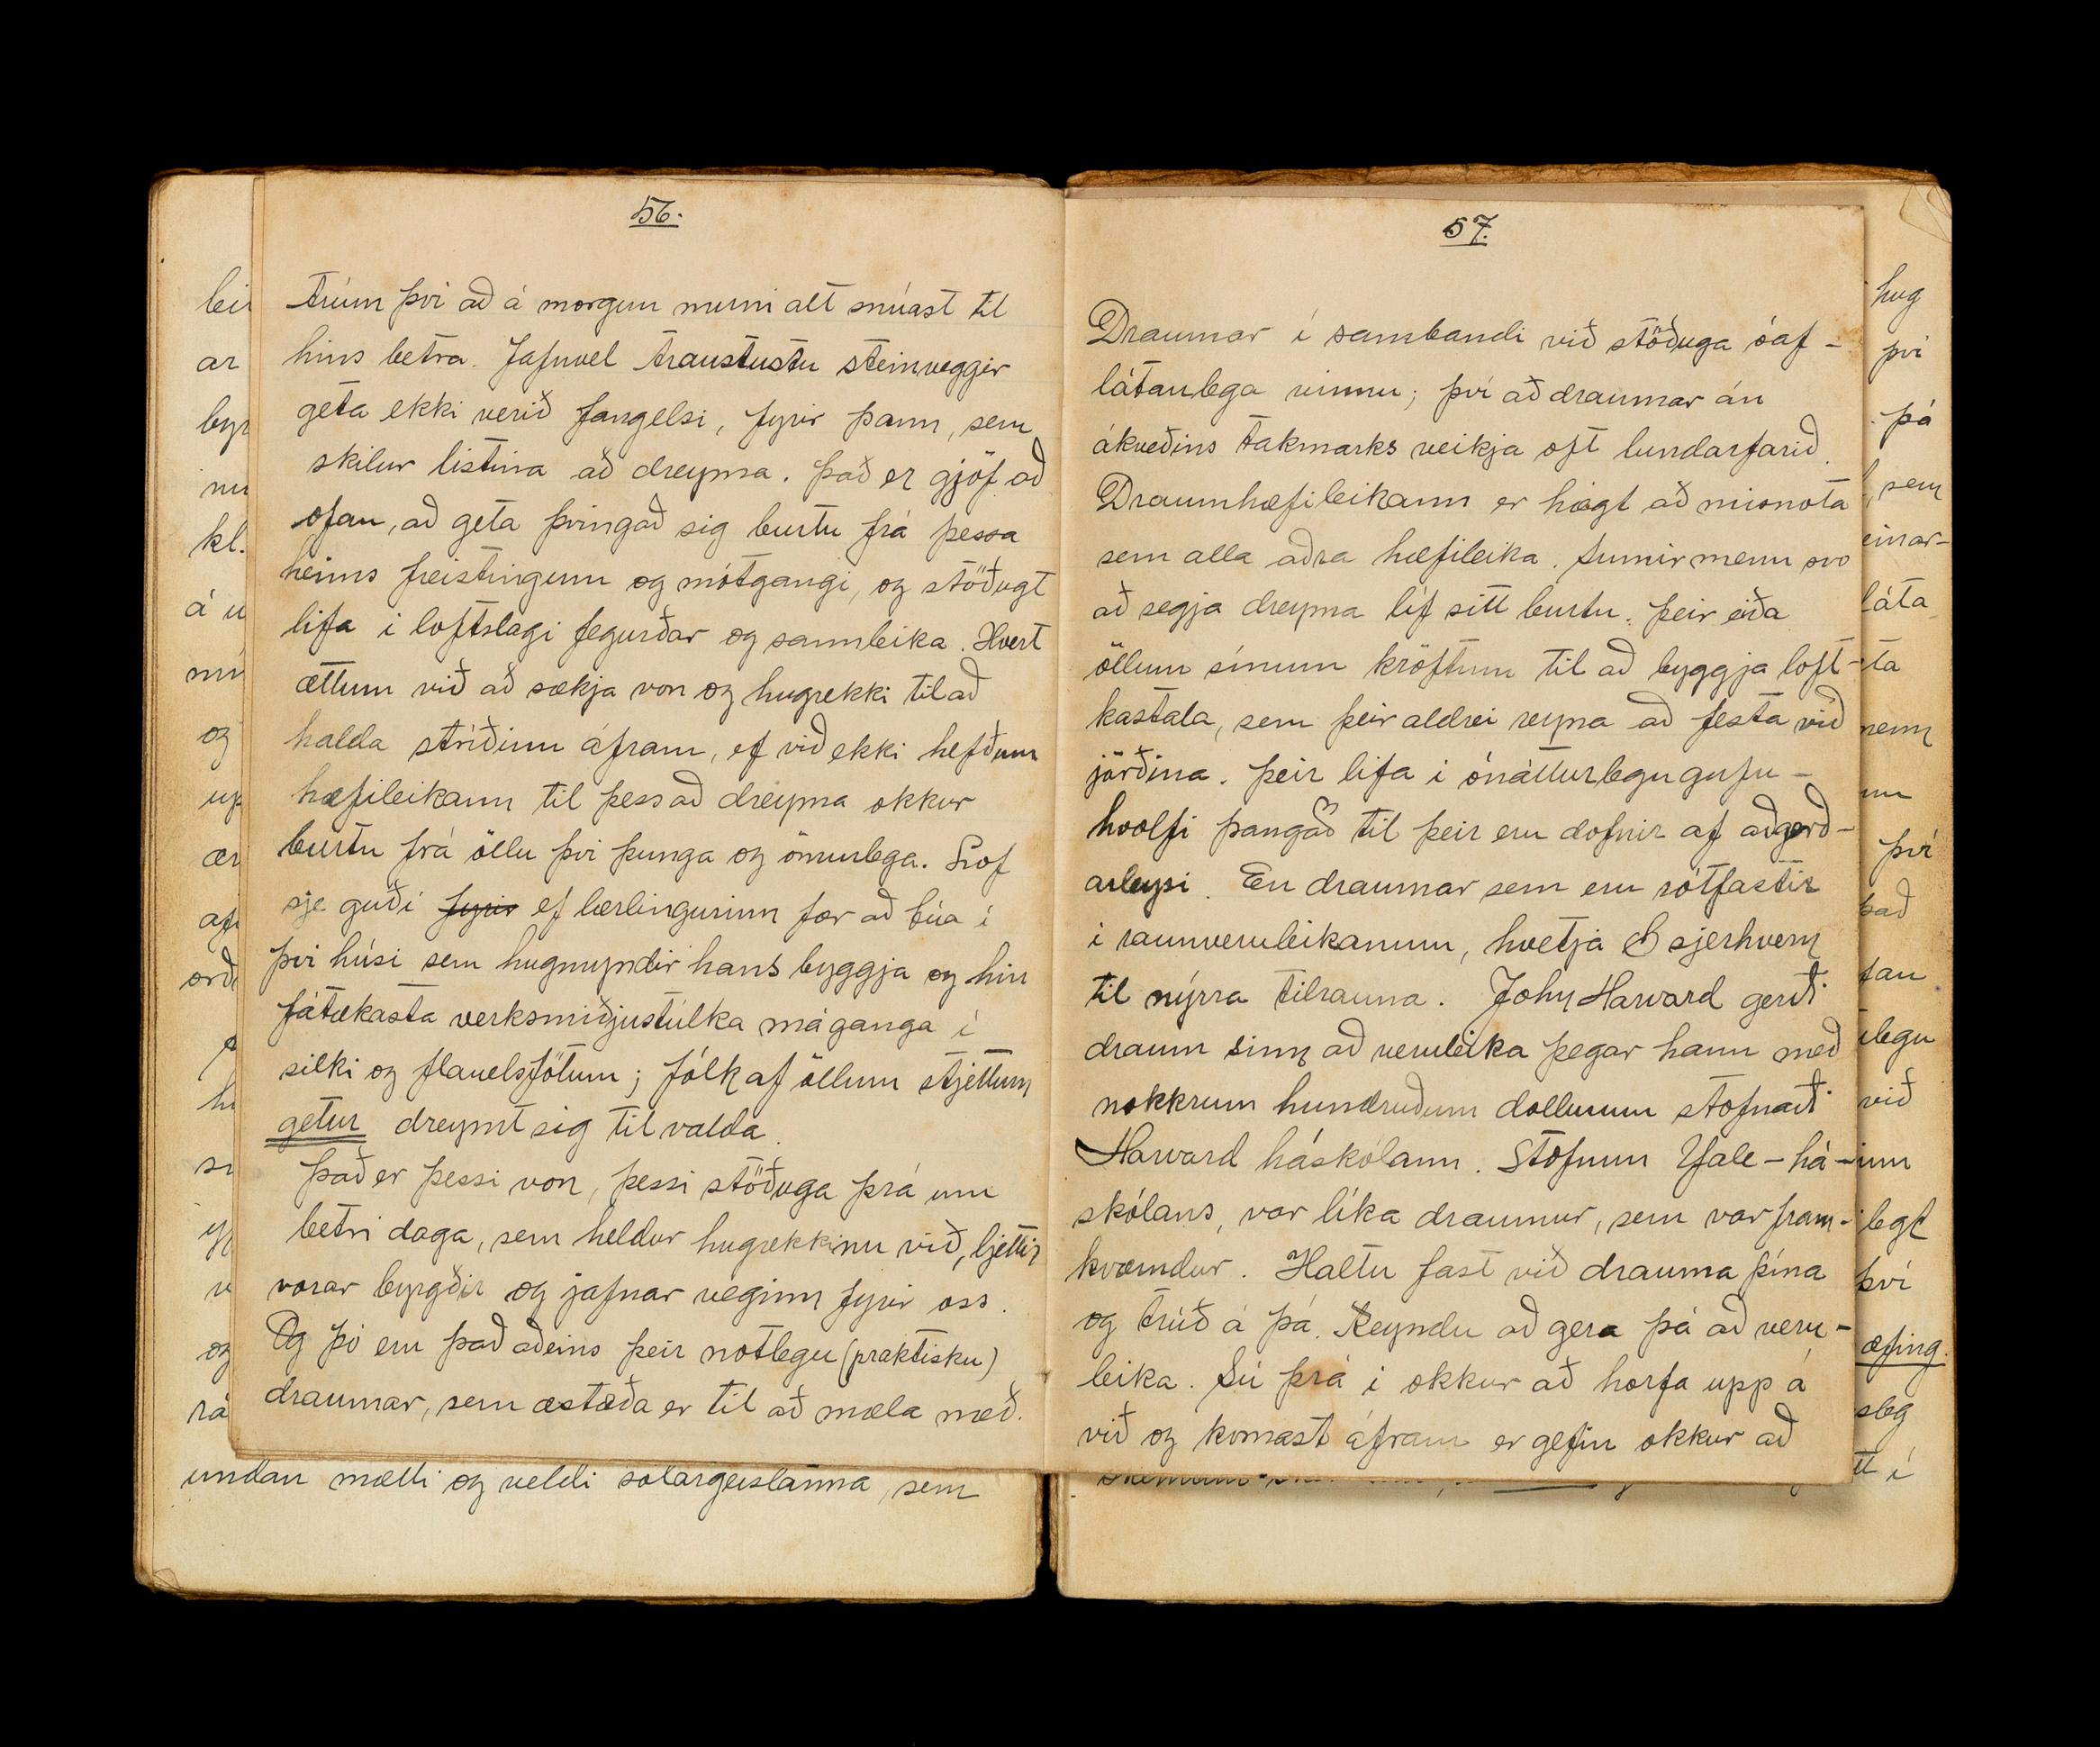 56.
trúum því að á morgun muni alt snúast til
hins betra. Jafnvel traustustu steinveggir
geta ekki verið fangelsi, fyrir þann, sem
skilur listina að dreyma. Það er gjöf að
ofan, að geta þvingað sig burtu frá þessa
heims freistingum og mótgangi, og stöðugt
lifa i loftslagi fegurðar og sannleika. Hvert
ættum við að sækja von og hugrekki til að
halda stríðinu áfram, ef við ekki hefðum
hæfileikann til þess að dreyma okkur
burtu frá öllu því þunga og ömurlega. Lof
sje guði fyrir ef lærlingurinn fær að búa í
því húsi sem hugmyndir hans byggja og hin
fátækasta verksmiðjustúlka má ganga í
silki og flauelsfötum; fólk af öllum stjettum
getur dreymt sig til valda.
Það er þessi von, þessi stöðuga þrá um
betri daga, sem heldur hugrekkinu við, ljettir
vorar byrgðir og jafnar veginn fyrir oss.
Og þó eru það aðeins þeir notlegu (praktisku)
draumar, sem æstæða er til að mæla með.
undan mætti og veldi sólargeislanna, sem
leir
ar
byr
nu
kl.
á u
mí
og
up
ær
afi
orð
h
sr
og
rá
57.
Draumar í sambandi við stöðuga óaf-
látanlega vinnu; því að draumar án
ákveðins takmarks veikja oft lundarfarið.
Draumhæfileikann er hægt að misnota
sem alla aðra hæfileika. Sumir menn svo
að segja dreyma líf sitt burtu. Þeir eiða
öllum sínum kröftum til að byggja loft-
kastala, sem þeir aldrei reyna að festa við
jörðina. Þeir lifa i ónátturlegu gufu-
hvolfi þangað til þeir eru dofnir af aðgerð-
arleysi. En draumar sem eru rótfastir
i raunveruleikanum, hvetja sjerhvern
til nýrra tilrauna. John Harvard gerði
draum sinn að veruleika þegar hann með
nokkrum hundruðum dollurum stofnaði
Harvard háskólann. Stofnun Yale-há-
skólans, var líka draumur, sem var fram-
kvæmdur. Haltu fast við drauma þína
og trúð á þá. Reyndu að gera þá að veru-
leika. Sú þrá i okkur að horfa upp á
við og komast áfram er gefin okkur að
hug
því
þá
sem
einar-
láta
ta
nenn
nu
því
það
fan
legu
við
inn
legt
því
æfing.
sleg
tt í